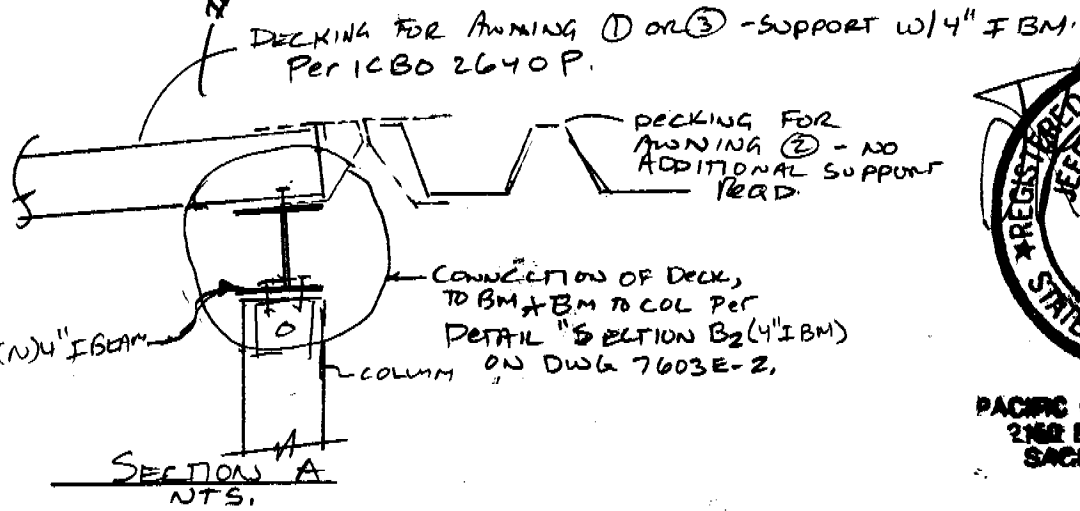 DECKING FOR AWNING ① OR ③ - SUPPORT W/4" I BM.
Per ICBO 2640P.
DECKING FOR
AWNING ② - NO
ADDITIONAL SUPPORT
REQD.
CONNECTION OF DECK,
TO BM & BM TO COL Per
DETAIL "SECTION B2 (4" I BM)
ON DWG 7603E-2.
(N)4" I BEAM
COLUMN
SECTION A
NTS.
★REGISTERED
JEFF
STATE
PACIFIC